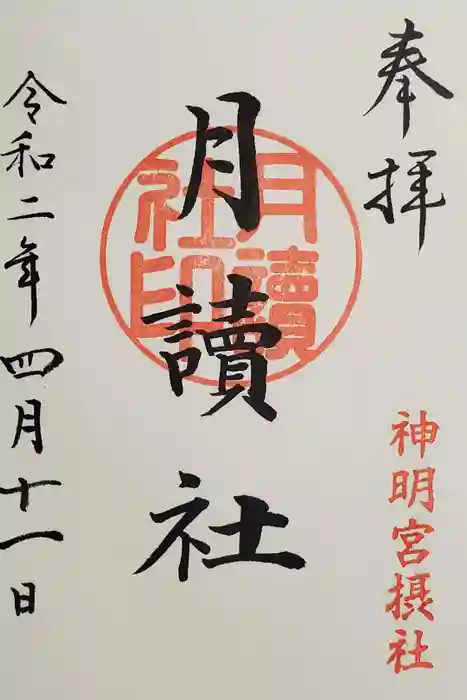 奉拝
神明宮摂社
月讀社
月讀社印
令和二年四月十一日